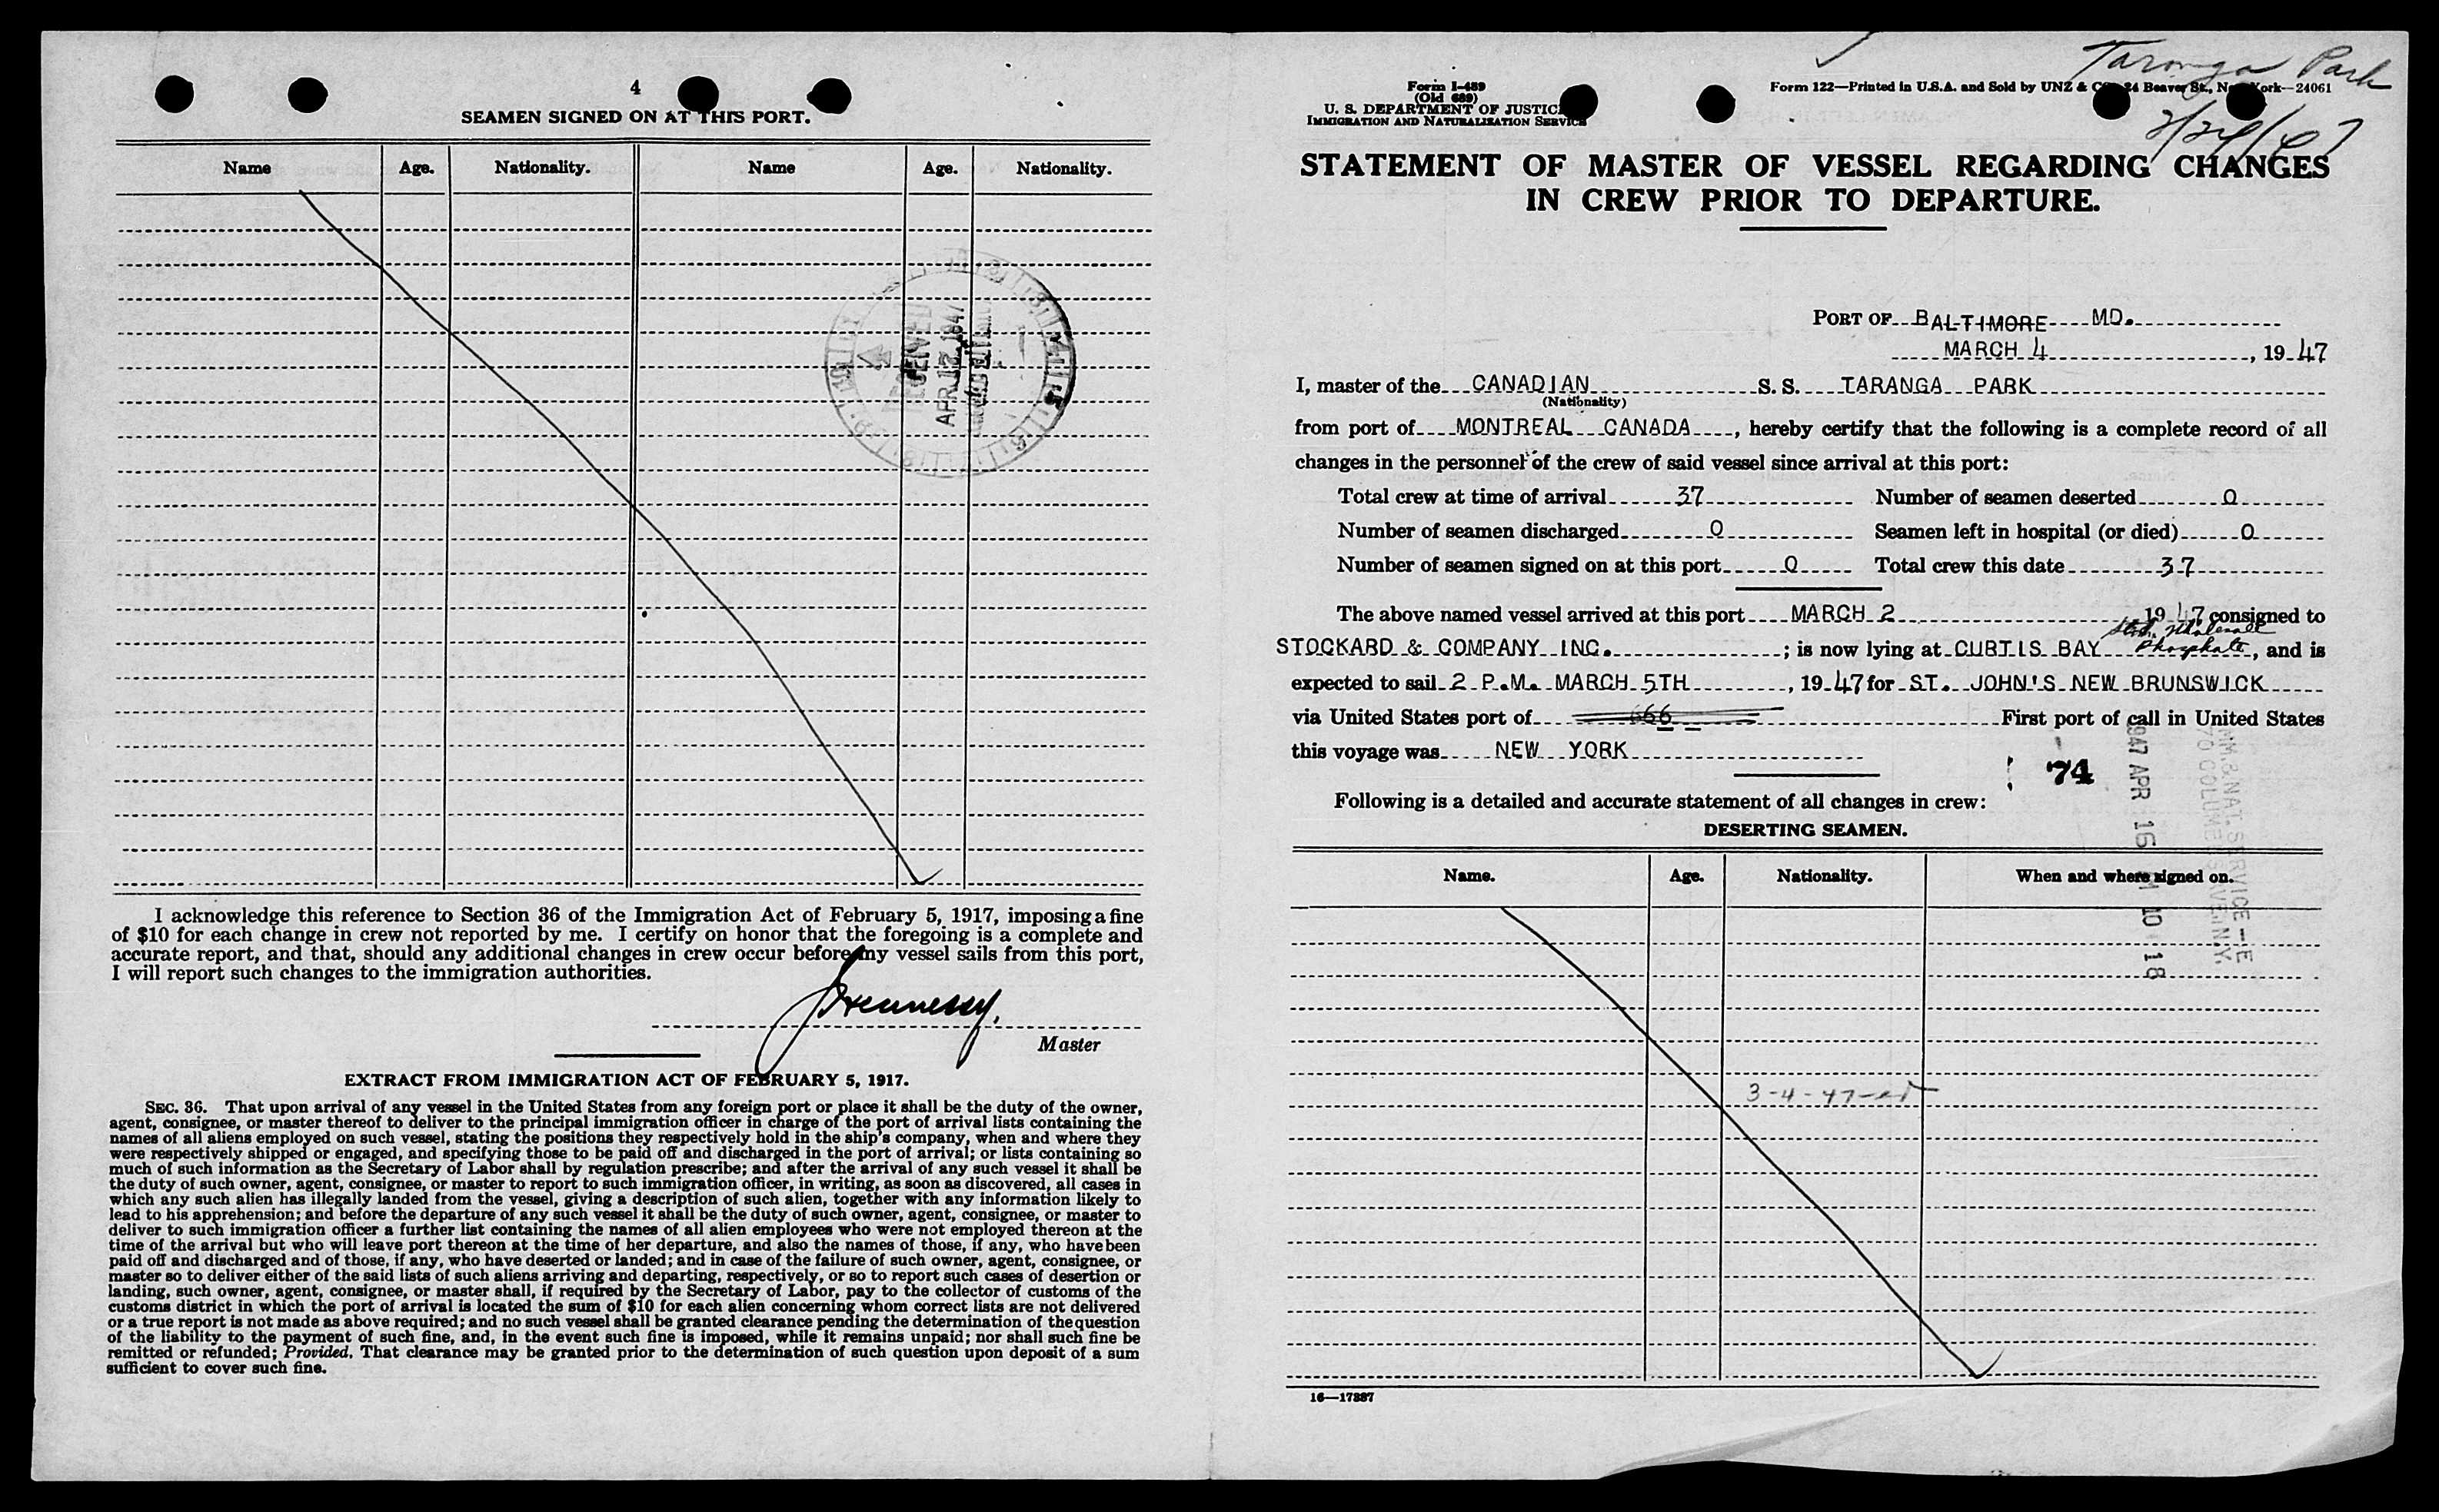 4
SEAMEN SIGNED ON AT THIS PORT.
Name Age. Nationality. Name Age. Nationality.
RECEIVED
APR 17 1947
I acknowledge this reference to Section 36 of the Immigration Act of February 5, 1917, imposing a fine
of $10 for each change in crew not reported by me. I certify on honor that the foregoing is a complete and
accurate report, and that, should any additional changes in crew occur before my vessel sails from this port,
I will report such changes to the immigration authorities.
J Hennessy.
Master
EXTRACT FROM IMMIGRATION ACT OF FEBRUARY 5, 1917.
SEC. 36. That upon arrival of any vessel in the United States from any foreign port or place it shall be the duty of the owner,
agent, consignee, or master thereof to deliver to the principal immigration officer in charge of the port of arrival lists containing the
names of all aliens employed on such vessel, stating the positions they respectively hold in the ship's company, when and where they
were respectively shipped or engaged, and specifying those to be paid off and discharged in the port of arrival; or lists containing so
much of such information as the Secretary of Labor shall by regulation prescribe; and after the arrival of any such vessel it shall be
the duty of such owner, agent, consignee, or master to report to such immigration officer, in writing, as soon as discovered, all cases in
which any such alien has illegally landed from the vessel, giving a description of such alien, together with any information likely to
lead to his apprehension; and before the departure of any such vessel it shall be the duty of such owner, agent, consignee, or master to
deliver to such immigration officer a further list containing the names of all alien employees who were not employed thereon at the
time of the arrival but who will leave port thereon at the time of her departure, and also the names of those, if any, who have been
paid off and discharged and of those, if any, who have deserted or landed; and in case of the failure of such owner, agent, consignee, or
master so to deliver either of the said lists of such aliens arriving and departing, respectively, or so to report such cases of desertion or
landing, such owner, agent, consignee, or master shall, if required by the Secretary of Labor, pay to the collector of customs of the
customs district in which the port of arrival is located the sum of $10 for each alien concerning whom correct lists are not delivered
or a true report is not made as above required; and no such vessel shall be granted clearance pending the determination of the question
of the liability to the payment of such fine, and, in the event such fine is imposed, while it remains unpaid; nor shall such fine be
remitted or refunded; Provided, That clearance may be granted prior to the determination of such question upon deposit of a sum
sufficient to cover such fine.
Taronga Park
2/24/47
Form I-489
(Old 689)
U. S. DEPARTMENT OF JUSTICE
IMMIGRATION AND NATURALIZATION SERVICE
Form 122—Printed in U.S.A. and Sold by UNZ & CO., 24 Beaver St., New York—24061
STATEMENT OF MASTER OF VESSEL REGARDING CHANGES
IN CREW PRIOR TO DEPARTURE.
PORT OF BALTIMORE MD.
MARCH 4, 1947
I, master of the CANADIAN S. S. TARANGA PARK
(Nationality)
from port of MONTREAL CANADA, hereby certify that the following is a complete record of all
changes in the personnel of the crew of said vessel since arrival at this port:
Total crew at time of arrival 37 Number of seamen deserted 0
Number of seamen discharged 0 Seamen left in hospital (or died) 0
Number of seamen signed on at this port 0 Total crew this date 37
The above named vessel arrived at this port MARCH 2 1947 consigned to
Std. Wholesale
STOCKARD & COMPANY INC.; is now lying at CURTIS BAY Phosphate, and is
expected to sail 2 P.M. MARCH 5TH, 1947 for ST. JOHN'S NEW BRUNSWICK
via United States port of 666 First port of call in United States
this voyage was NEW YORK
74
Following is a detailed and accurate statement of all changes in crew:
DESERTING SEAMEN.
Name. Age. Nationality. When and where signed on.
IMM. & NAT. SERVICE
70 COLUMBUS AVE. N.Y.
1947 APR 16 M 10 18
3-4-47
16—17387